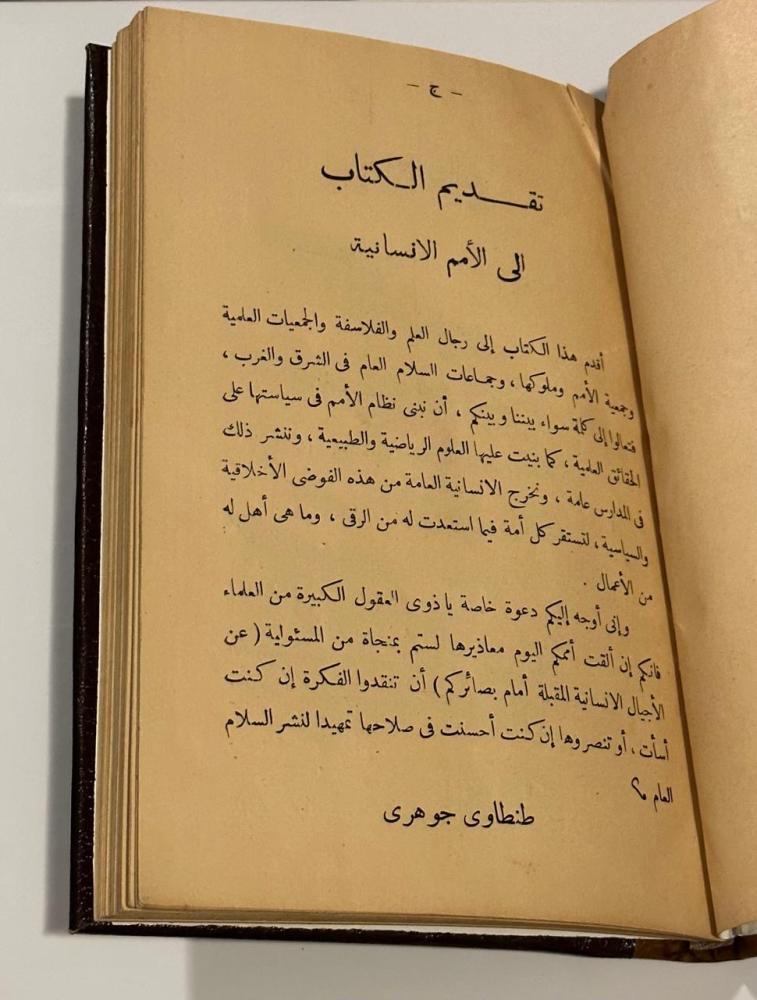 - ج -
تقديم الكتاب
الى الأمم الانسانية
أقدم هذا الكتاب إلى رجال العلم والفلاسفة والجمعيات العلمية
وجمعية الأمم وملوكها ، وجماعات السلام العام فى الشرق والغرب ،
فتعالوا إلى كلمة سواء بيننا وبينكم ، أن نبنى نظام الأمم فى سياستها على
الحقائق العلمية ، كما بنيت عليها العلوم الرياضية والطبيعية ، وننشر ذلك
فى المدارس عامة ، ونخرج الانسانية العامة من هذه الفوضى الأخلاقية
والسياسية ، لتستقر كل أمة فيما استعدت له من الرقى ، وما هى أهل له
من الأعمال .
وإنى أوجه إليكم دعوة خاصة يا ذوى العقول الكبيرة من العلماء
فانكم إن ألقت أممكم اليوم معاذيرها لستم بمنجاة من المسئولية ( عن
الأجيال الانسانية المقبلة أمام بصائركم ) أن تنقدوا الفكرة إن كنت
أسأت ، أو تنصروها إن كنت أحسنت فى صلاحها تمهيدا لنشر السلام
العام
طنطاوى جوهرى